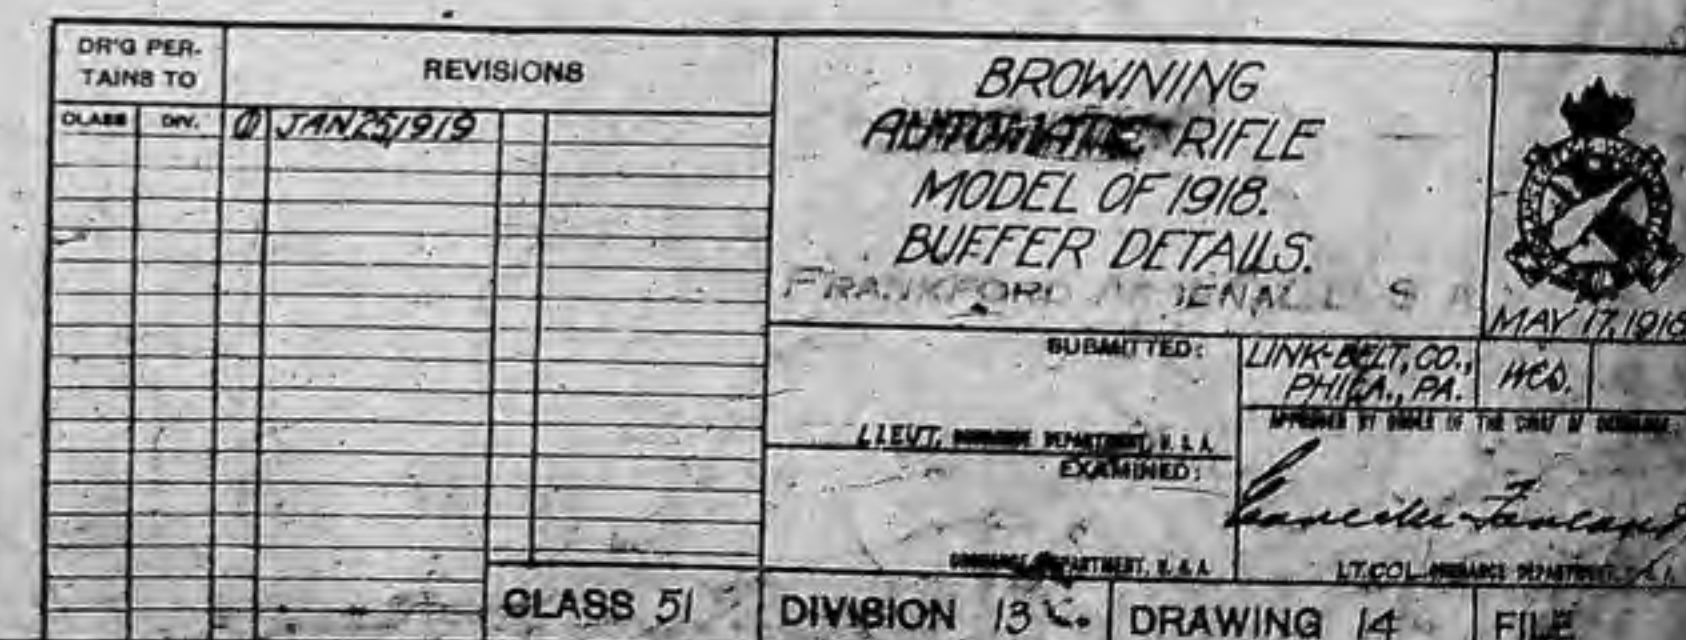 DR'G PER-
TAINS TO
REVISIONS
CLASS
DIV.
① JAN 25, 1919
BROWNING
AUTOMATIC RIFLE
MODEL OF 1918.
BUFFER DETAILS.
FRANKFORD ARSENAL U S A
MAY 17, 1918
SUBMITTED:
LINK-BELT, CO.,
PHILA., PA.
LIEUT. ORDNANCE DEPARTMENT, U. S. A.
EXAMINED:
ORDNANCE DEPARTMENT, U. S. A.
APPROVED BY ORDER OF THE CHIEF OF ORDNANCE.
LT. COL. ORDNANCE DEPARTMENT, U. S. A.
CLASS 51
DIVISION 13
DRAWING 14
FILE